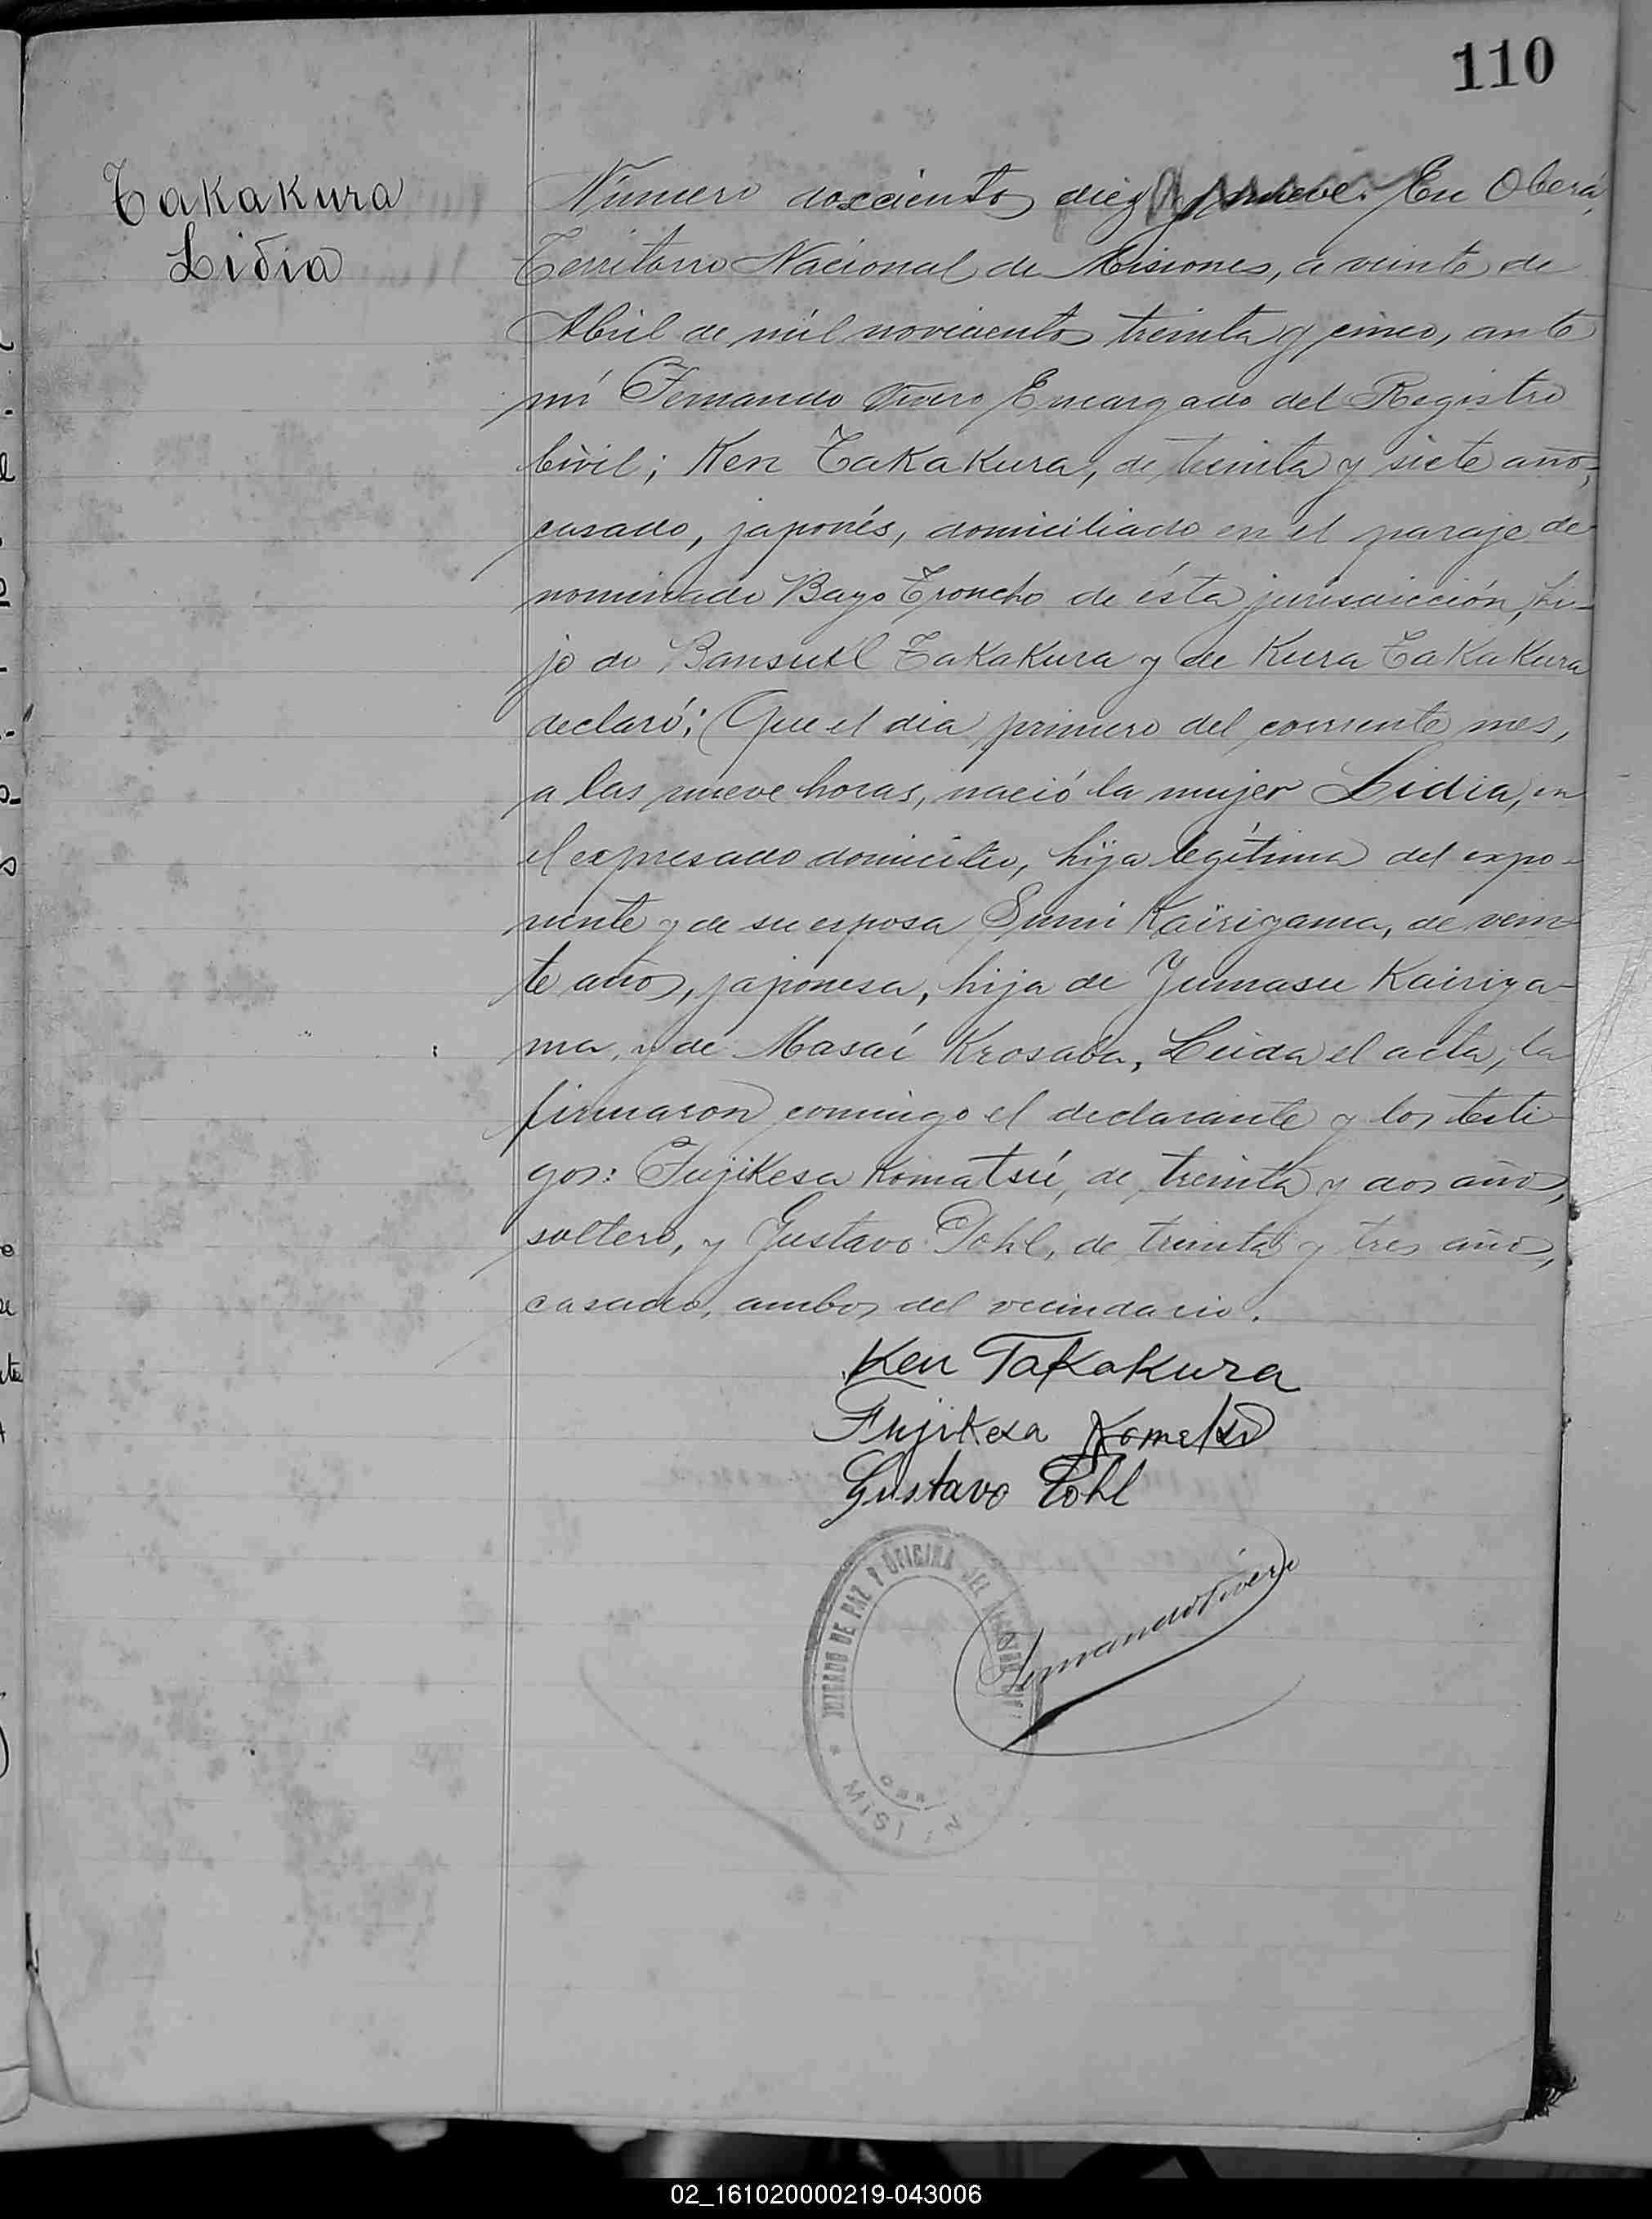 110
Takakura
Lidia
Número doscientos diez y nueve. En Oberá,
Territorio Nacional de Misiones, a veinte de
Abril de mil novecientos treinta y cinco, ante
mí Fernando Vivero Encargado del Registro
Civil; Ken Takakura, de treinta y siete años,
casado, japonés, domiciliado en el paraje de
nominado Bayo Troncho de ésta jurisdicción, hi-
jo de Takakura y de Kura Takakura
declaró: Que el dia primero del corriente mes,
a las nueve horas, nació la mujer Lidia, en
el expresado domicilio, hija legítima del expo-
nente y de su esposa Sumi Kairiyama, de vein-
te años, japonesa, hija de Jumasu Kairiya-
ma, y de Masaí Krosaba, Leida el acta, la
firmaron conmigo el declarante y los testi-
gos: Fujikesa Komatsú, de treinta y dos años,
soltero, y Gustavo Pohl, de treinta y tres años,
casado, ambos del vecindario.
Ken Takakura
Fujikesa
Gustavo Pohl
JUZGADO DE PAZ Y OFICINA DEL REGISTRO
Fernando Vivero
02_161020000219-043006